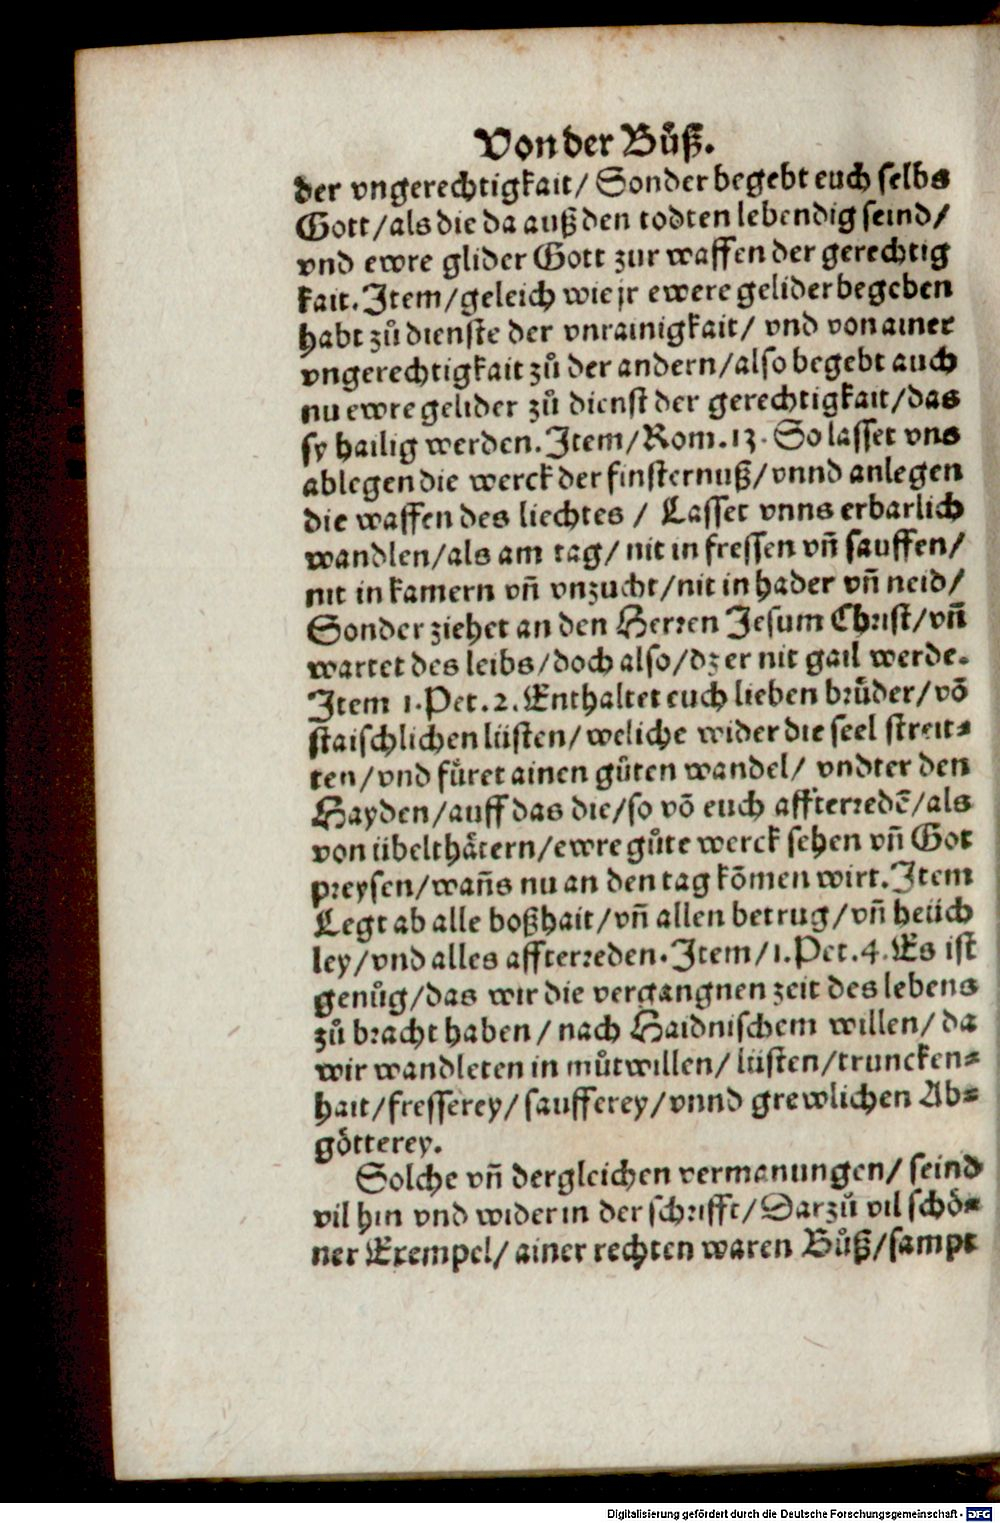 Von der Bůß.
der vngerechtigkait/ Sonder begebt euch selbs
Gott/als die da auß den todten lebendig seind/
vnd ewre glider Gott zur waffen der gerechtig
kait. Item/geleich wie jr ewere gelider begeben
habt zů dienste der vnrainigkait/ vnd von ainer
vngerechtigkait zů der andern/also begebt auch
nu ewre gelider zů dienst der gerechtigkait/das
sy hailig werden. Item/Rom.13. So lasset vns
ablegen die werck der finsternuß/vnnd anlegen
die waffen des liechtes / Lasset vnns erbarlich
wandlen/als am tag/ nit in fressen vñ sauffen/
nit in kamern vñ vnzucht/nit in hader vñ neid/
Sonder ziehet an den Herren Jesum Christ/vñ
wartet des leibs/doch also/dz er nit gail werde.
Item 1.Pet.2. Enthaltet euch lieben brůder/võ
flaischlichen lüsten/weliche wider die seel streit-
ten/vnd füret ainen gůten wandel/ vndter den
Hayden/auff das die/so võ euch affterredẽ/als
von übelthätern/ewre gůte werck sehen vñ Got
preysen/wañs nu an den tag kõmen wirt. Item
Legt ab alle boßhait/vñ allen betrug/vñ heüch
ley/vnd alles affterreden. Item/1.Pet.4. Es ist
genůg/das wir die vergangnen zeit des lebens
zů bracht haben/ nach Haidnischem willen/ da
wir wandleten in můtwillen/ lüsten/truncken-
hait/fresserey/ saufferey/vnnd grewlichen Ab-
götterey.
Solche vñ dergleichen vermanungen/ seind
vil hin vnd wider in der schrifft/ Darzů vil schö-
ner Exempel/ ainer rechten waren Bůß/sampt
Digitalisierung gefördert durch die Deutsche Forschungsgemeinschaft - DFG